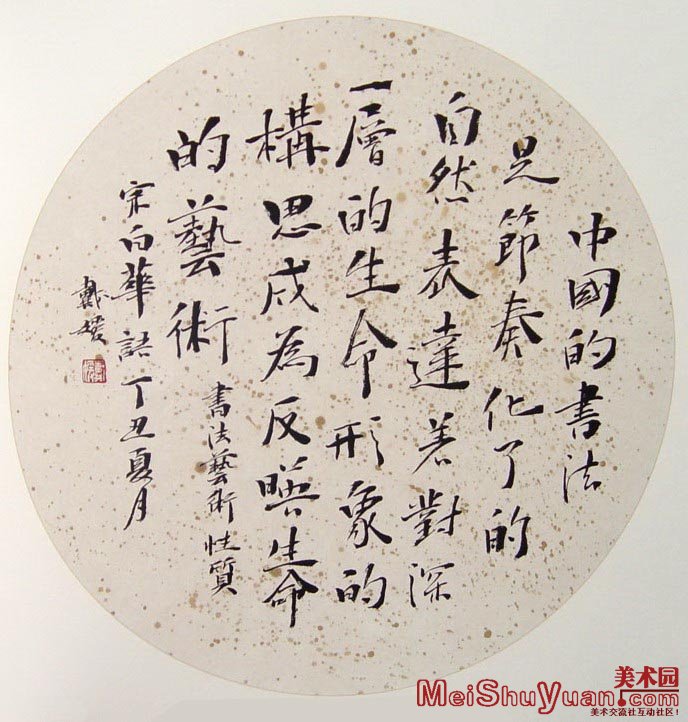 中國的書法
是節奏化了的
自然表達着對深
一層的生命形象的
構思成為反映生命
的藝術
書法藝術性質
宗白華語丁丑夏月
戴媛
美术园
MeiShuYuan.com
美术交流社互动社区!